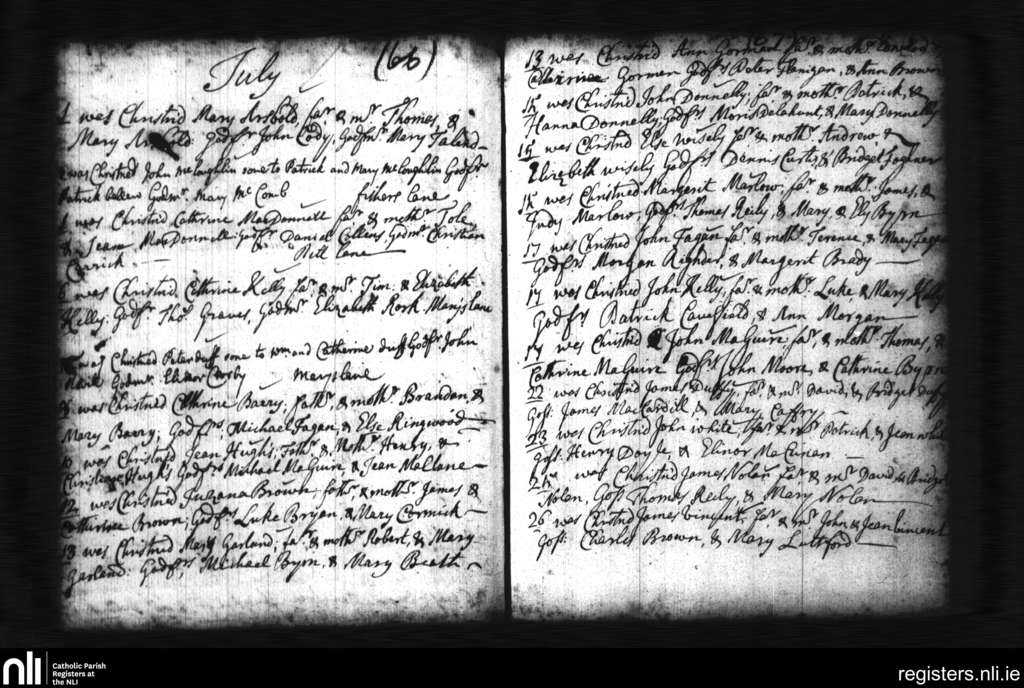 (66)
July
1 was Christnd Mary Arsbold, far. & mr. Thomas, &
Mary Godfr. John Cody, Godmr. Mary Taland
was Christned John McLoughlin sone to Patrick and Mary McLoughlin Godfr
Patrick Godmr. Mary McComb fishers lane
was Christnd Cathrine MacDonnell far. & mothr. Tole
& Jean MacDonnell: Godfr. Daniel Collens, Godmr. Christian
Carrick. — Hill lane —
was Christnd. Cathrine Kelly far. & mr. Tim: & Elizabeth
Kelly: Godfr. Tho: Graves, Godmr. Elizabeth Rork Marys lane
was Christned Peter duff sone to wm. and Catherine duff Godfr John
Godmr. Elinor marys lane
was Christned Cathrine Barry: fathr. & mothr. Brandan, &
Mary Barry; Godfrs. Michael Fagan, & Else Ringwood —
was Christnd Jean Hughs; fathr. & Mothr. Henry, &
Hughs Godfrs Michael MaGuire, & Jean Mallane —
12 was Christnd Juzana Brown, fathr. & mothr. James &
Catharine Brown; Godfrs Luke Bryan, & Mary Cormick —
13 was Christned Mary Garland; far. & mothr. Robert, & Mary
Garland: Godfrs Michael Byrn, & Mary Beath —
13 was Christnd Ann Gorman far. & mothr.
Cathrine Gorman Godfrs Peter Flanigan, & Ann Brown
15 was Christnd John Donnelly, far. & mothr. Patrick, &
Hanna Donnelly, Godfrs Moris Delahunt, & Mary Donnelly
15 was Christnd Else Wisely far. & mothr. Andrew &
Elizebeth Wisely Godfrs Dennis Curtis, & Bridget
was Christned Margerit Marlow, far. & mothr. James, &
Judy Marlow, Godfrs. Thomas Reily, & Mary, & Ely Byrn
17 was Christned John Fagan far. & mothr. Terence, & Mary Fagan
Godfrs Morgan & Margerit Brady —
17 was Christned John Kelly, far. & mothr. Luke & Mary Kelly
Godfrs Patrick Caveffield, & Ann Morgan —
19 was Christnd John MaGuire far. & mothr. Thomas, &
Cathrine MaGuire Godfrs John Moore, & Cathrine Byrne
22 was Christnd James Duffy, far. & mr. David, & Bridget Duffy
Gofs: James MacCardill, & Mary Caffry —
23 was Christnd John White, far. & mr. Patrick, & Jean White
Gofs: Henry Doyle, & Elinor —
was Christnd James Nolan far. & mr. David & Bridget
Nolan, Gofs Thomas Reily, & Mary Nolan —
26 was Christnd James Vincent, far. & mr. John & Jean Vincent
Gofs: Charles Brown, & Mary —
nli
Catholic Parish
Registers at
the NLI
registers.nli.ie